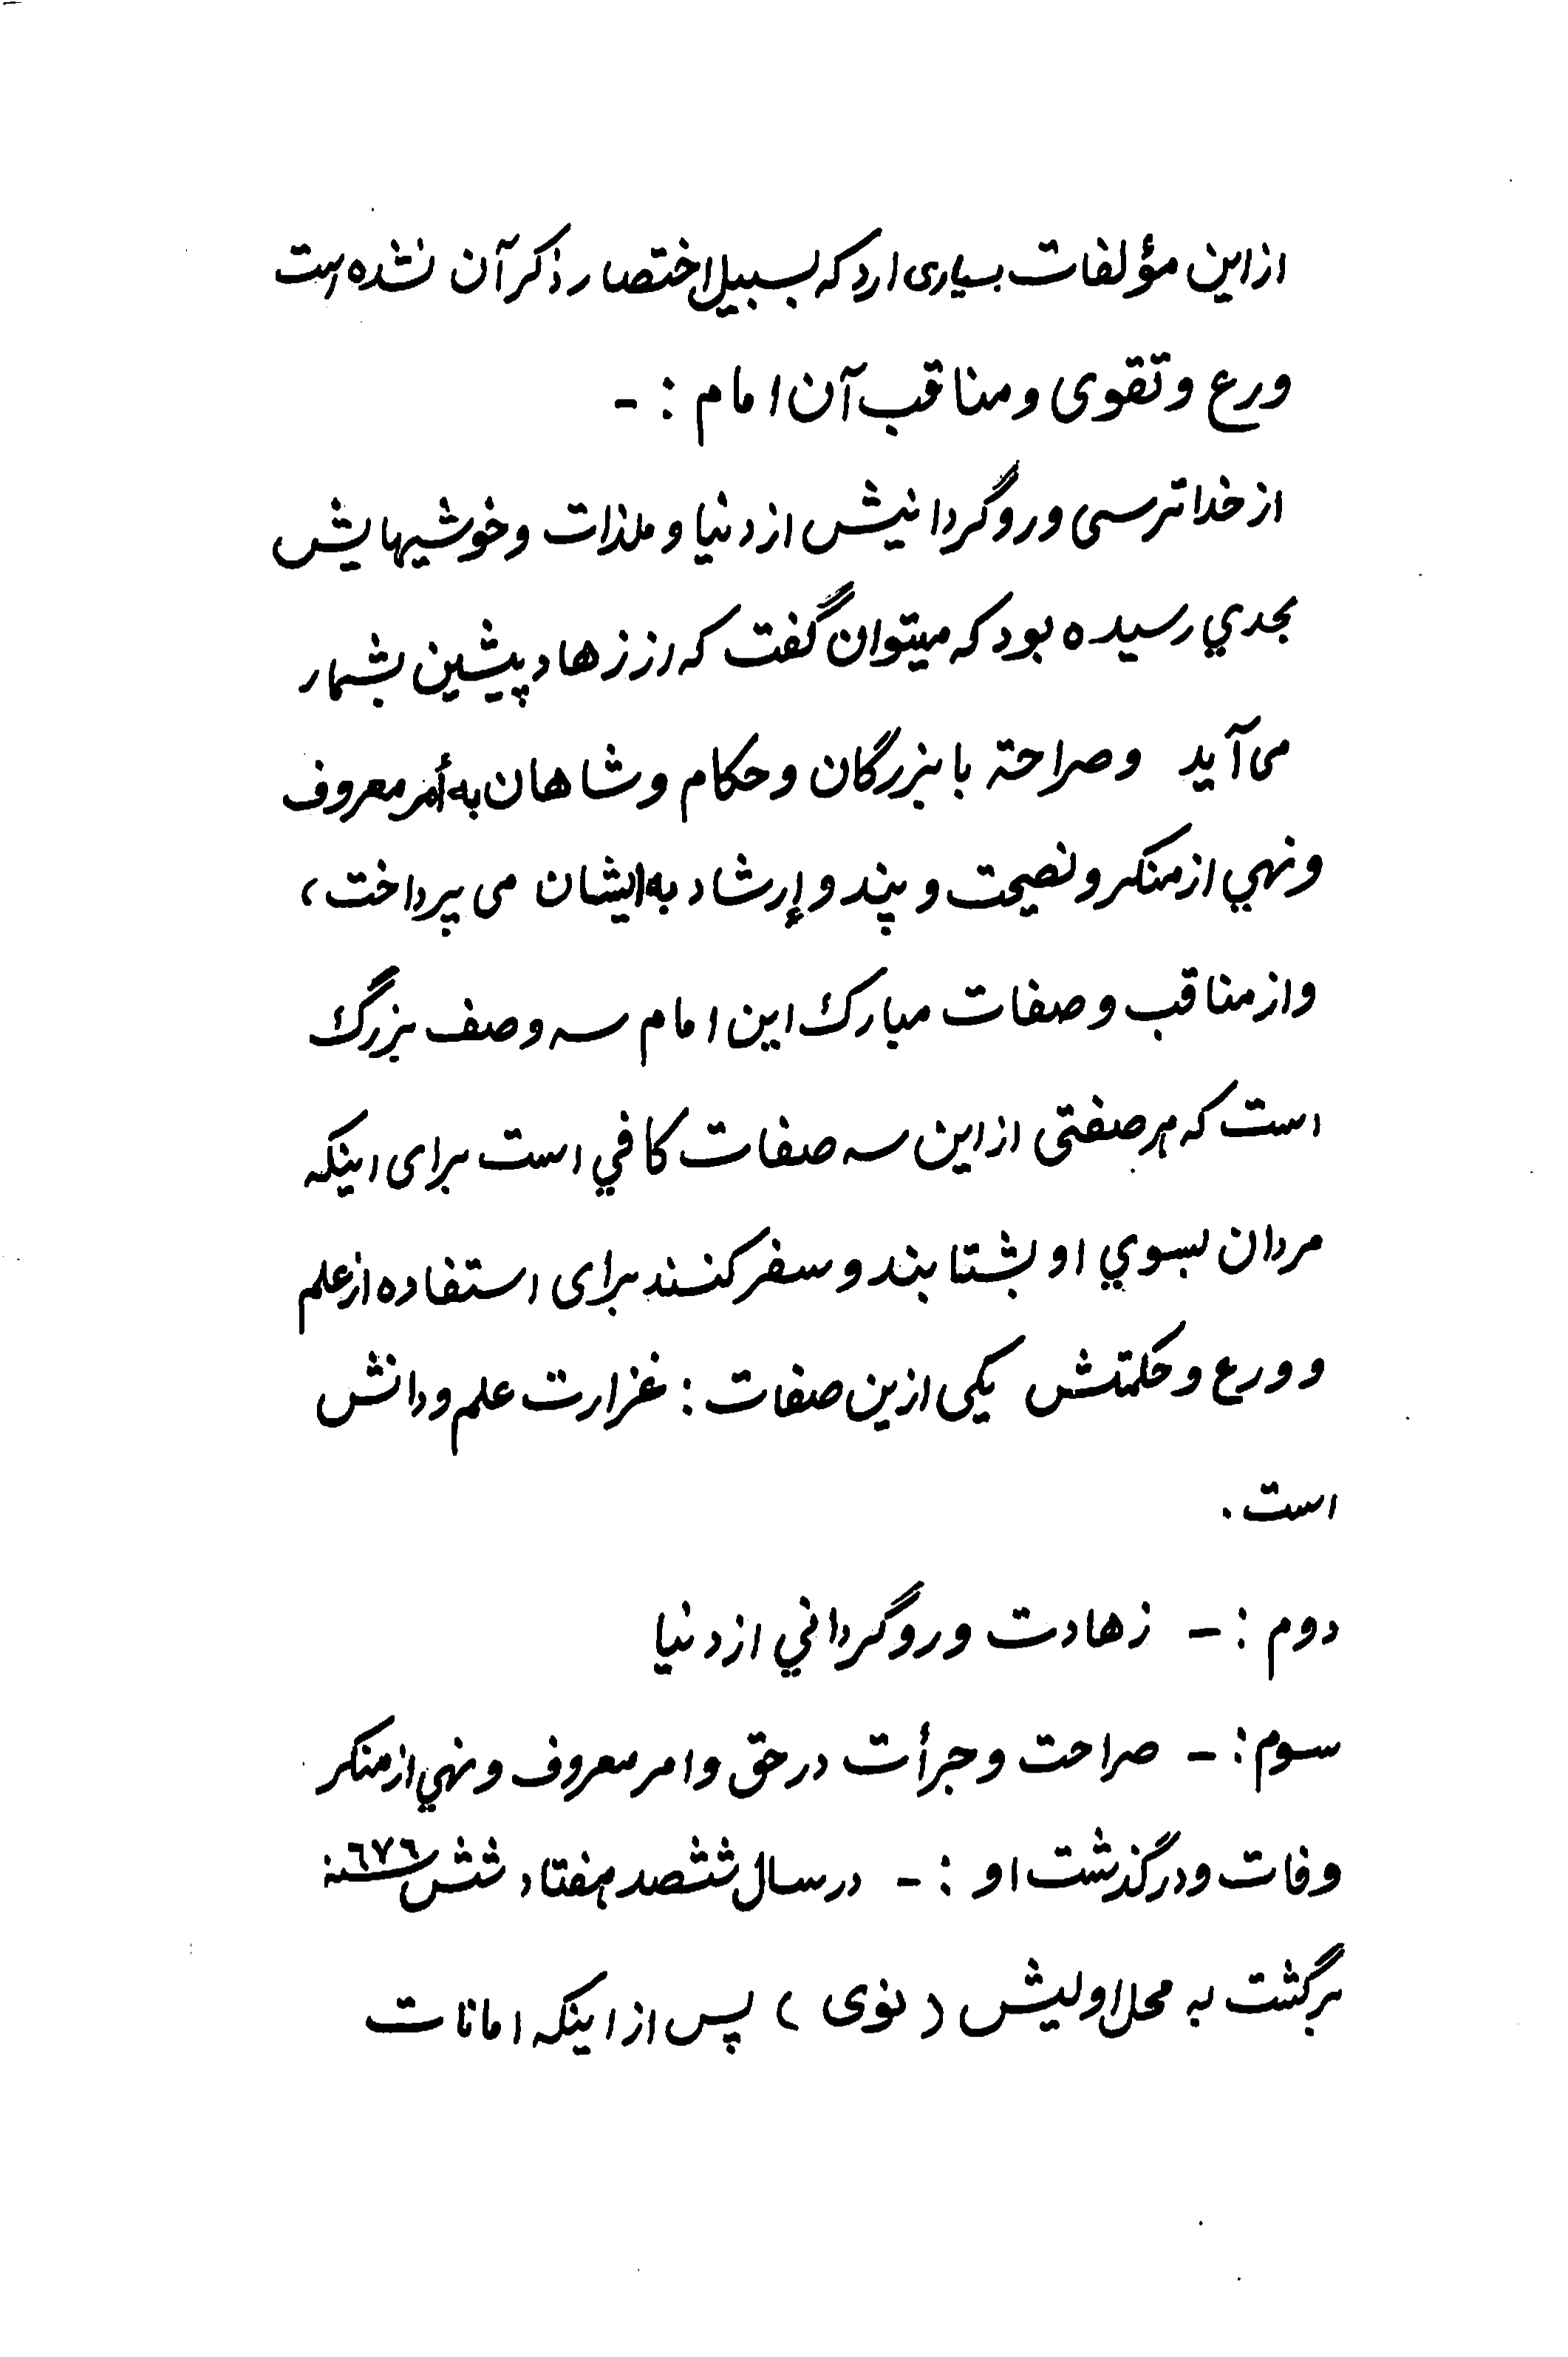 از این مؤلفات بسیاری ارد که بسبیل اختصار ذکر آن نشده است
ورع و تقوی و مناقب آن امام : -
از خدا ترسی و روگردانیش از دنیا و ملذات و خوشیهایش
بحدي رسیده بود که میتوان گفت که از زهاد پیشین بشمار
می آید و صراحة با بزرگان و حکام و شاهان به أمر معروف
و نهي از منکر و نصیحت و پند و إرشاد به ایشان می پرداخت ،
و از مناقب و صفات مبارك این امام سه وصف بزرگ
است که هر صفتی از این سه صفات کافي است برای اینکه
مردان بسوي او بشتابند و سفر کنند برای استفاده از علم
و ورع و حکمتش یکی ازین صفات : غزارت علم و دانش
است .
دوم : - زهادت و روگرداني از دنیا
سوم : - صراحت و جرأت در حق و امر معروف و نهي از منکر
وفات و درگذشت او : - در سال ششصد هفتاد شش سنة ٦٧٦
برگشت به محل اولیش ( نوی ) پس از اینکه امانات